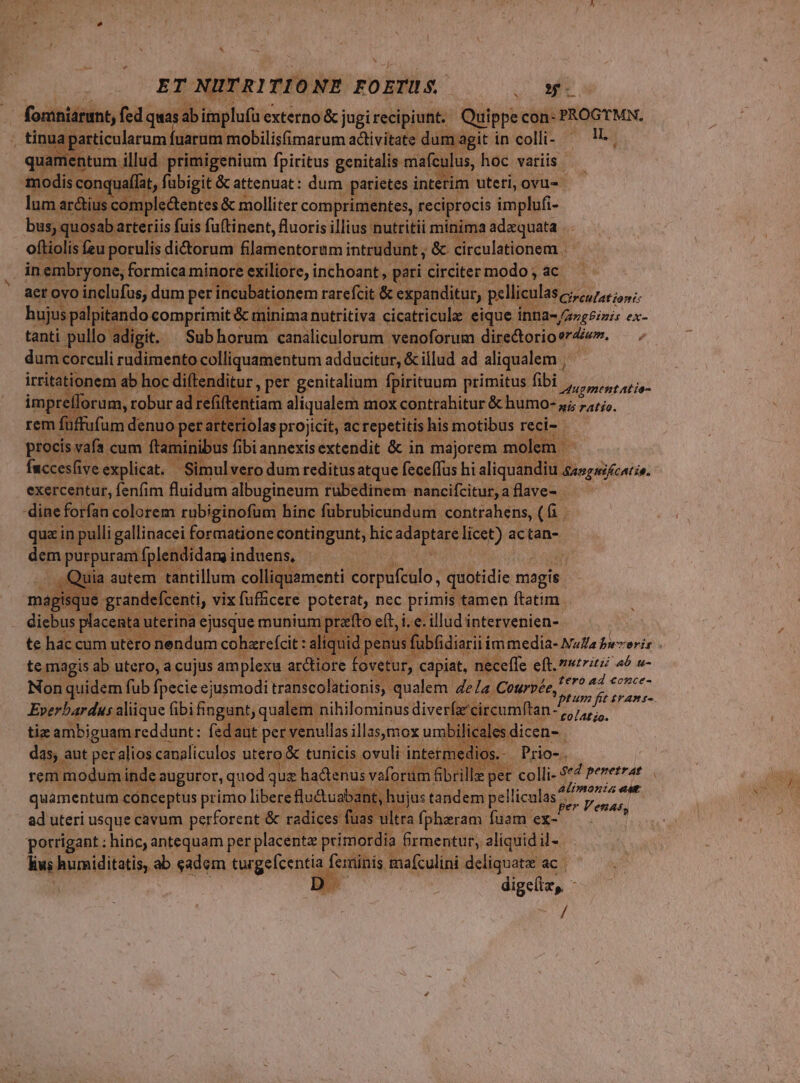 ET NUTRITIONE FOETUS. 25
ſomniarunt, ſed quas ab impluſu externo & jugi recipiunt. Quippe con- PROGYMN.
tinua particularum ſuarum mobilisſimarum activitate dum agit in colli- II.
quamentum illud primigenium ſpiritus genitalis maſculus, hoc variis
modis conquaſſat, ſubigit & attenuat: dum parietes interim uteri, ovu-
lum arctius complectentes & molliter comprimentes, reciprocis impluſi-
bus, quos ab arteriis ſuis ſuſtinent, fluoris illius nutritii minima adæquata
oſtiolis ſeu porulis dictorum filamentorum intrudunt, & circulationem
in embryone, formica minore exiliore, inchoant, pari circiter modo, ac
aer ovo incluſus, dum per incubationem rareſcit & expanditur, pelliculas Circulationis
hujus palpitando comprimit & minima nutritiva cicatriculæ eique inna- ſanguinis ex-
tanti pullo adigit. Sub horum canaliculorum venoſorum directorio ordium.
dum corculi rudimento colliquamentum adducitur, & illud ad aliqualem
irritationem ab hoc diſtenditur, per genitalium ſpirituum primitus ſibi Augmentatio-
impreſſorum, robur ad reſiſtentiam aliqualem mox contrahitur & humo- nis ratio.
rem ſuffuſum denuo per arteriolas projicit, ac repetitis his motibus reci-
procis vaſa cum ſtaminibus ſibi annexis extendit & in majorem molem
ſuccesſive explicat. Simul vero dum reditus atque ſeceſſus hi aliquandiu Sanguificatio.
exercentur, ſenſim fluidum albugineum rubedinem nanciſcitur, a flave-
dine forſan colorem rubiginoſum hinc ſubrubicundum contrahens, (ſi
quæ in pulli gallinacei formatione contingunt, hic adaptare licet) ac tan-
dem purpuram ſplendidam induens.
Quia autem tantillum colliquamenti corpuſculo, quotidie magis
magisque grandeſcenti, vix ſufficere poterat, nec primis tamen ſtatim
diebus placenta uterina ejusque munium præſto eſt, i. e. illud intervenien-
te hac cum utero nondum cohæreſcit: aliquid penus ſubſidiarii immedia- Nulla buveris
te magis ab utero, a cujus amplexu arctiore fovetur, capiat, neceſſe eſt. nutritii ab u-
Non quidem ſub ſpecie ejusmodi transcolationis, qualem de la Courvée, tero ad conce-
Everhardus aliique ſibi fingunt, qualem nihilominus diverſæ circumſtan- ptum fit trans-
tiæ ambiguam reddunt: ſed aut per venullas illas, mox umbilicales dicen- colatio.
das, aut per alios canaliculos utero & tunicis ovuli intermedios. Prio-
rem modum inde auguror, quod quæ hactenus vaſorum fibrillæ per colli- Sed penetrat
quamentum conceptus primo libere fluctuabant, hujus tandem pelliculas alimonia aut
ad uteri usque cavum perforent & radices ſuas ultra ſphæram ſuam ex- per Venas,
porrigant: hinc, antequam per placentæ primordia firmentur, aliquid il-
lius humiditatis, ab eadem turgeſcentia feminis maſculini deliquatæ ac
D digeſtæ,